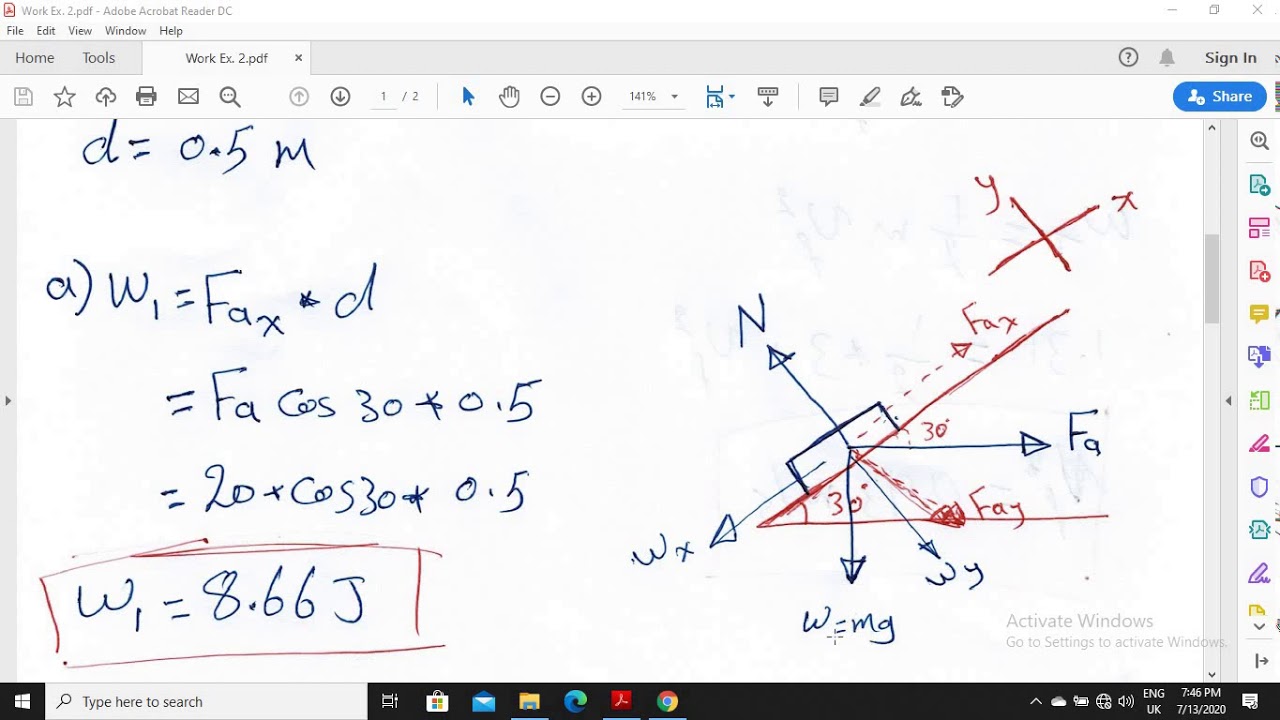 Work Ex. 2.pdf - Adobe Acrobat Reader DC
File Edit View Window Help
Home Tools Work Ex. 2.pdf × Sign In
1 / 2 141% Share
d = 0.5 m
a) W1 = Fax * d
= Fa cos 30 * 0.5
= 20 * cos 30 * 0.5
W1 = 8.66 J
y x
N
Fax
30°
Fa
30°
Fay
wx
wy
w = mg
Activate Windows
Go to Settings to activate Windows.
Type here to search
ENG 7:46 PM
UK 7/13/2020